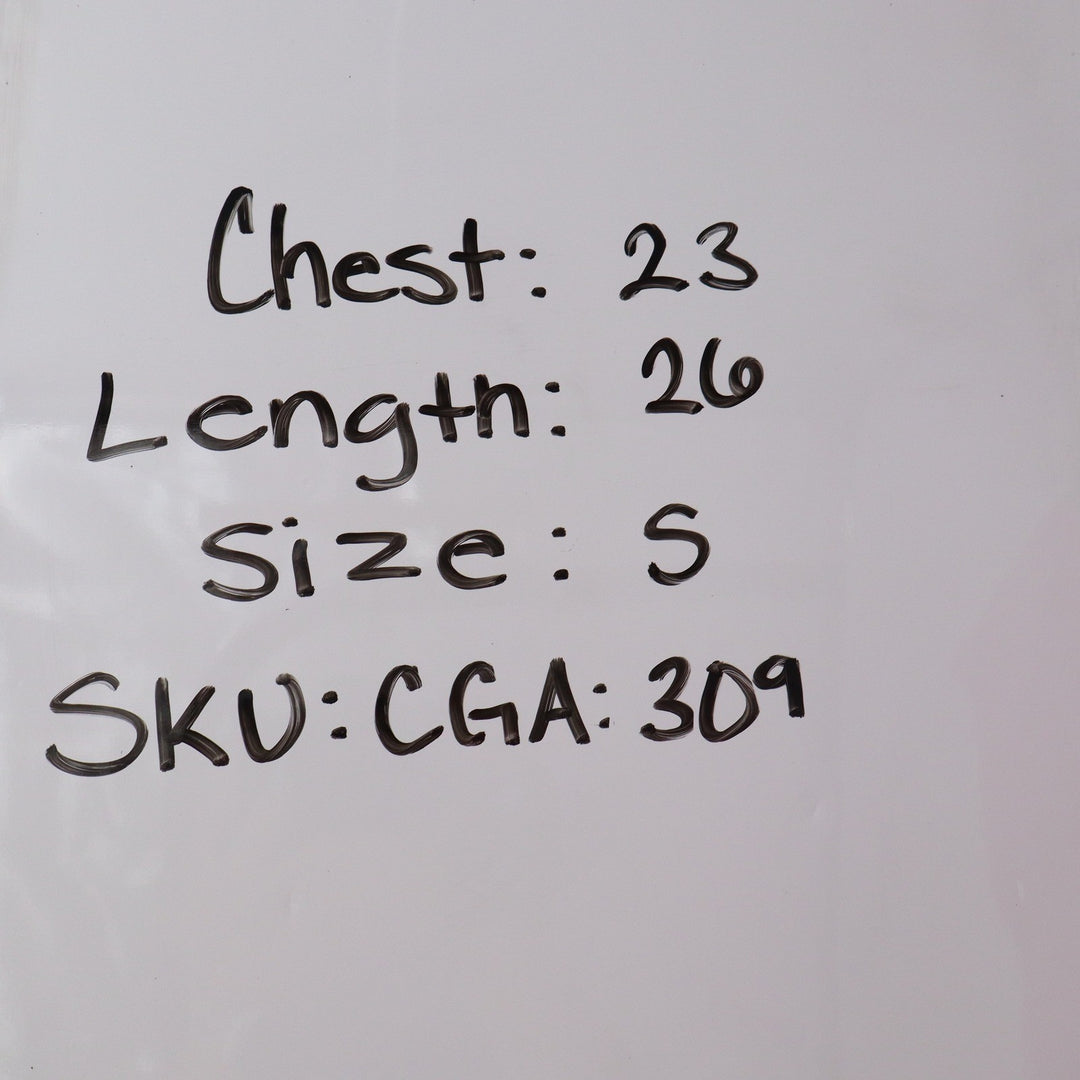 Chest: 23
Length: 26
Size: S
SKU: CGA: 309